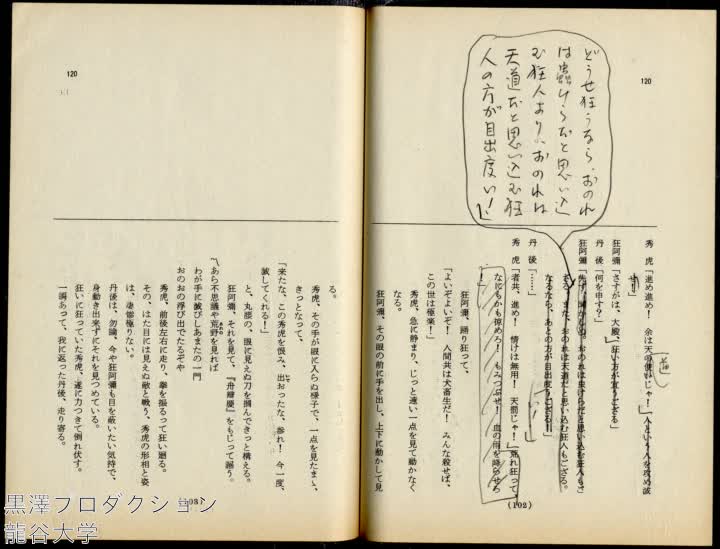 120
どうせ狂うなら、おのれ
は蟲けらだと思い込
む狂人より、おのれは
天道だと思い込む狂
人の方が目出度い!!
秀 虎「進め進め! 余は天の使いじゃ!」人という人を攻め滅
せ!」
狂阿彌「さすがは、大殿、狂い方が宜うござる」
丹 後「何を申す?」
狂阿彌「先ず、聞かしめ。おのれは虫けらだと思い込む狂人もご
ざる。また、おのれは天道だと思い込む狂人もござる。
なるなら、あとの方が目出度うござる!」
丹 後「……」
秀 虎「者共、進め! 情けは無用! 天罰じゃ!」荒れ狂って、
なにもかも掠めろ! もみつぶせ! 血の雨を降らせろ
!」
狂阿彌、踊り狂って、
「よいぞよいぞ! 人間共は犬畜生だ! みんな殺せば、
この世は極楽!」
秀虎、急に静まり、じっと遠い一点を見て動かなく
なる。
狂阿彌、その眼の前に手を出し、上下に動かして見
(102)
120
る。
秀虎、その手が眼に入らぬ様子で、一点を見たまゝ、
きっとなって、
「来たな、この秀虎を恨み、出おったな、參れ! 今一度、
滅してくれる!」
と、丸腰の、眼に見えぬ刀を摑んできっと構える。
狂阿彌、それを見て、『舟辨慶』をもじって謡う。
〽あら不思議や荒野を見れば
わが手に滅びしあまたの一門
おのおの浮び出でたるぞや
秀虎、前後左右に走り、拳を振るって狂い廻る。
その、はた目には見えぬ敵と戦う、秀虎の形相と姿
は、凄惨極りない。
丹後は、勿論、今や狂阿彌も目を蔽いたい気持で、
身動き出来ずにそれを見つめている。
狂いに狂っていた秀虎、遂に力つきて倒れ伏す。
一瞬あって、我に返った丹後、走り寄る。
(103)
黒澤プロダクション
龍谷大学